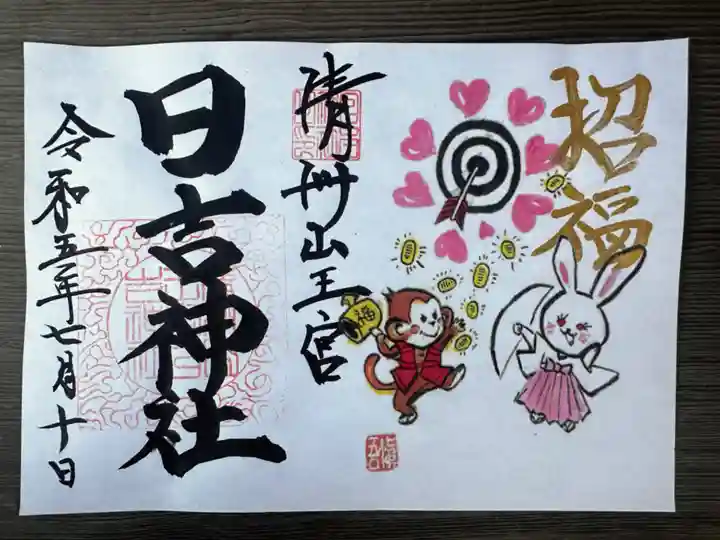 招福
清州山王宮
日吉神社
令和五年七月十日
福